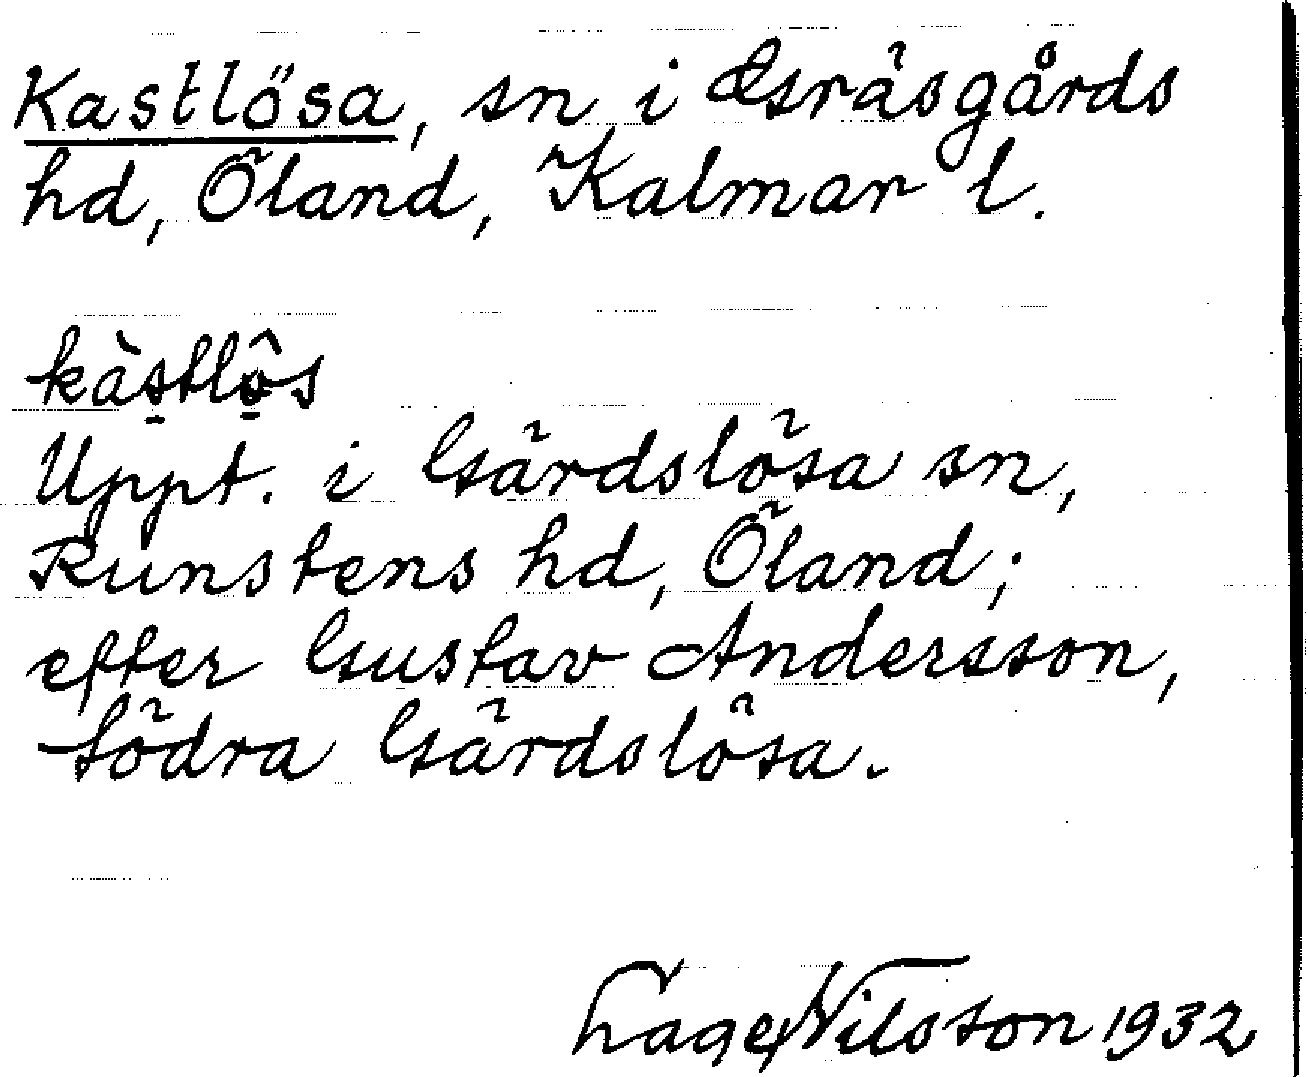 Kastlösa, sn i Gräsgårds
hd, Öland, Kalmar l.
kàstlôs
Uppt. i Gärdslösa sn,
Runstens hd, Öland;
efter Gustav Andersson,
södra Gärdslösa.
Lage Nilsson 1932